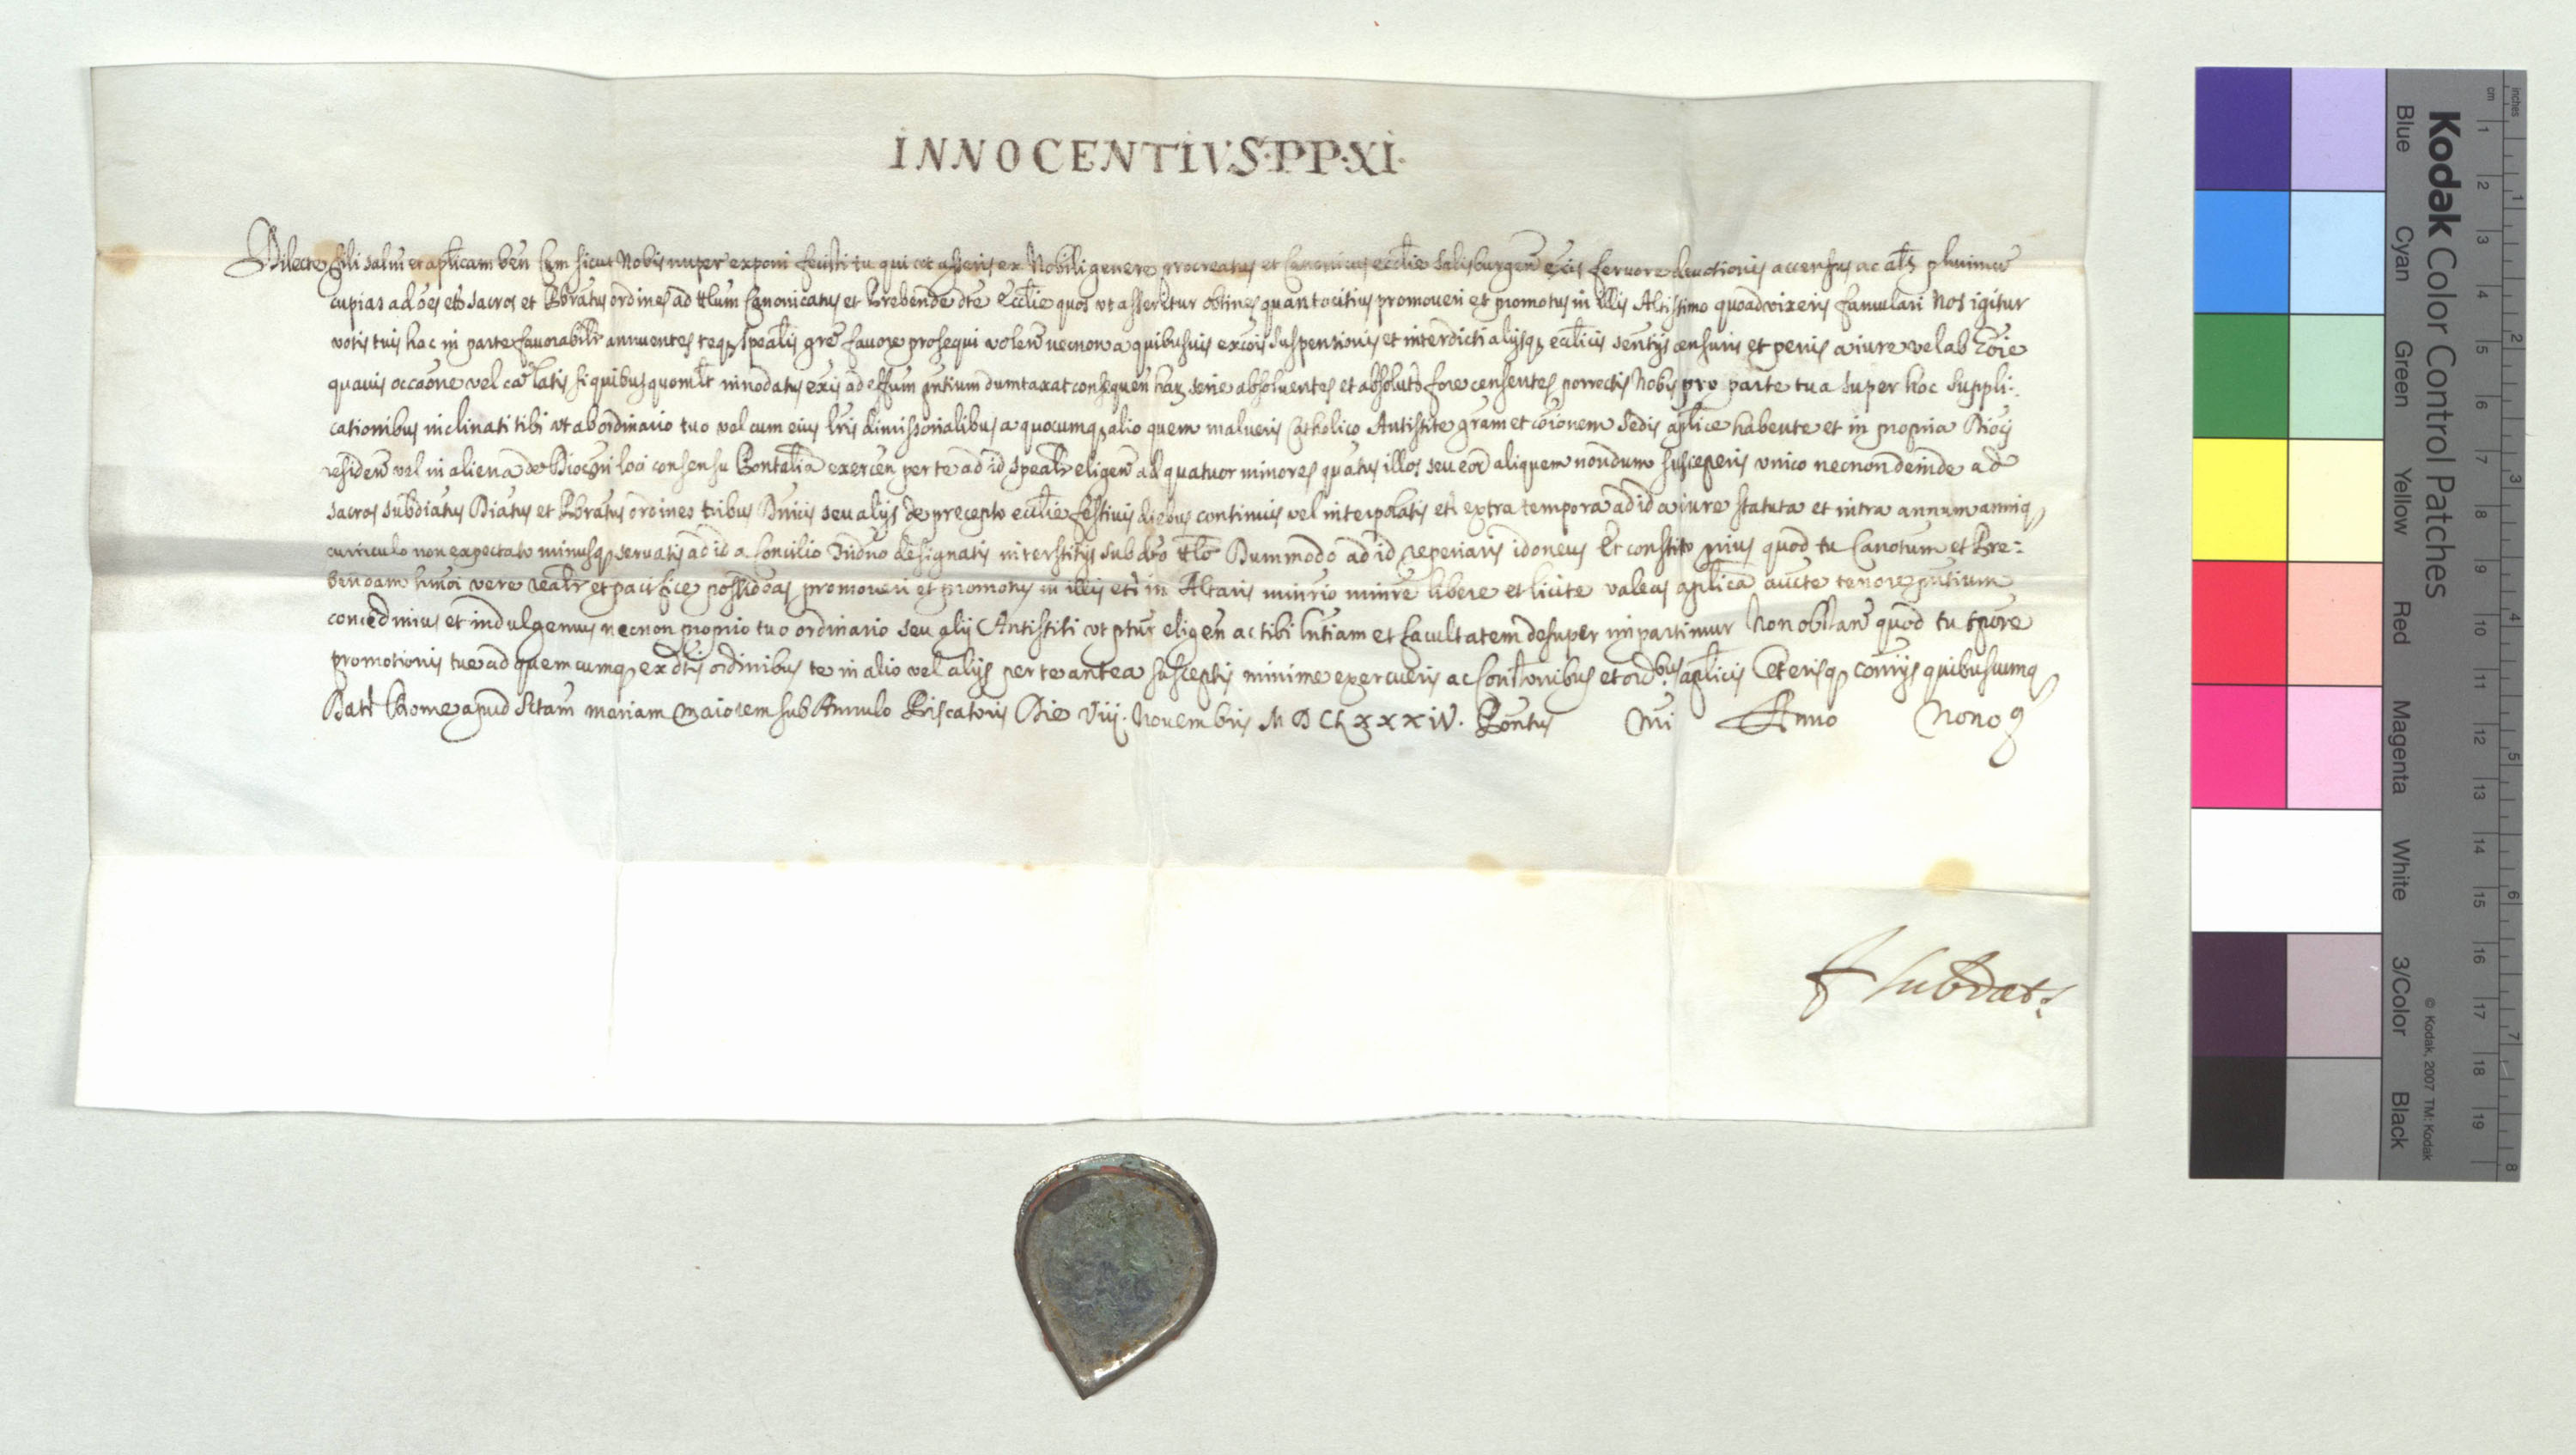 INNOCENTIVS·PP·XI·
Dilecte fili salm et aplicam ben Cum sicut Nobis nuper exponi fecisti tu qui ut asseris ex Nobili genere procreatus et Canonicus ecclie Salisburgen exis fervore devotionis accensus ac als plurimum
cupias ad oes etc sacros et Pbratus ordines ad ttlum Canonicatus et Prebende dte Ecclie quos ut asseritur obtines quantocitius promoveri et promotus in illis Altissimo quoad vixeris famulari Nos igitur
votis tuis hac in parte favorabilr annuentes teq spealis gre favore prosequi volen necnon a quibusvis excois suspensionis et interdicti alijsq ecclicis sentijs censuris et penis a iure vel ab hoie
quavis occaone vel ca latis si quibus quomlt innodatus exis ad effum pntium dumtaxat consequen harz serie absolventes et absolutu fore censentes porrectis Nobis pro parte tua super hoc suppli:
cationibus inclinati tibi ut ab ordinario tuo vel cum eius lris dimissorialibus a quocumq alio quem malueris Catholico Antistite gram et coionem Sedis aplice habente et in propria Dioci
residen vel in aliena de Diocesni loci consensu Pontalia exercen per te ad id spealr eligen ad quatuor minores quatus illos seu eor aliquem nondum susceperis unico necnon deinde ad
sacros subdiatus Diatus et Pbratus ordines tribus Dnicis seu alijs de precepto ecclie festivis diebus continuis vel interpolatis eti extra tempora ad id a iure statuta et intra annum anniq
curriculo non expectato minusq servatis ad id a Concilio Tridno designatis interstitijs sub dto ttlo Dummodo ad id reperiaris idoneus Et constito prius quod tu Canotum et Pre:
bendam hmoi vere realr et pacifice possideas promoveri et promotus in illis eti in Altaris minrio minre libere et licite valeas aplica aucte tenore pntium
concedimus et indulgemus necnon proprio tuo ordinario seu alij Antistiti ut pfur eligen ac tibi lntiam et facultatem desuper impartimur Non obstan quod tu tpore
promotionis tue ad quemcumq ex dtis ordinibus te in alio vel alijs per te antea susceptis minime exercueris ac Constonibus et ordbus aplicis Ceterisq contrijs quibuscumq
Dat Rome apud Sctam mariam maiorem sub Annulo Piscatoris Die Viij. Novembris MDCLXXXIV. Pontus Nri Anno Nono
subdat.
Kodak Color Control Patches
Blue Cyan Green Yellow Red Magenta White 3/Color Black
© Kodak, 2007 TM: Kodak
cm 1 2 3 4 5 6 7 8 9 10 11 12 13 14 15 16 17 18 19
inches 1 2 3 4 5 6 7 8